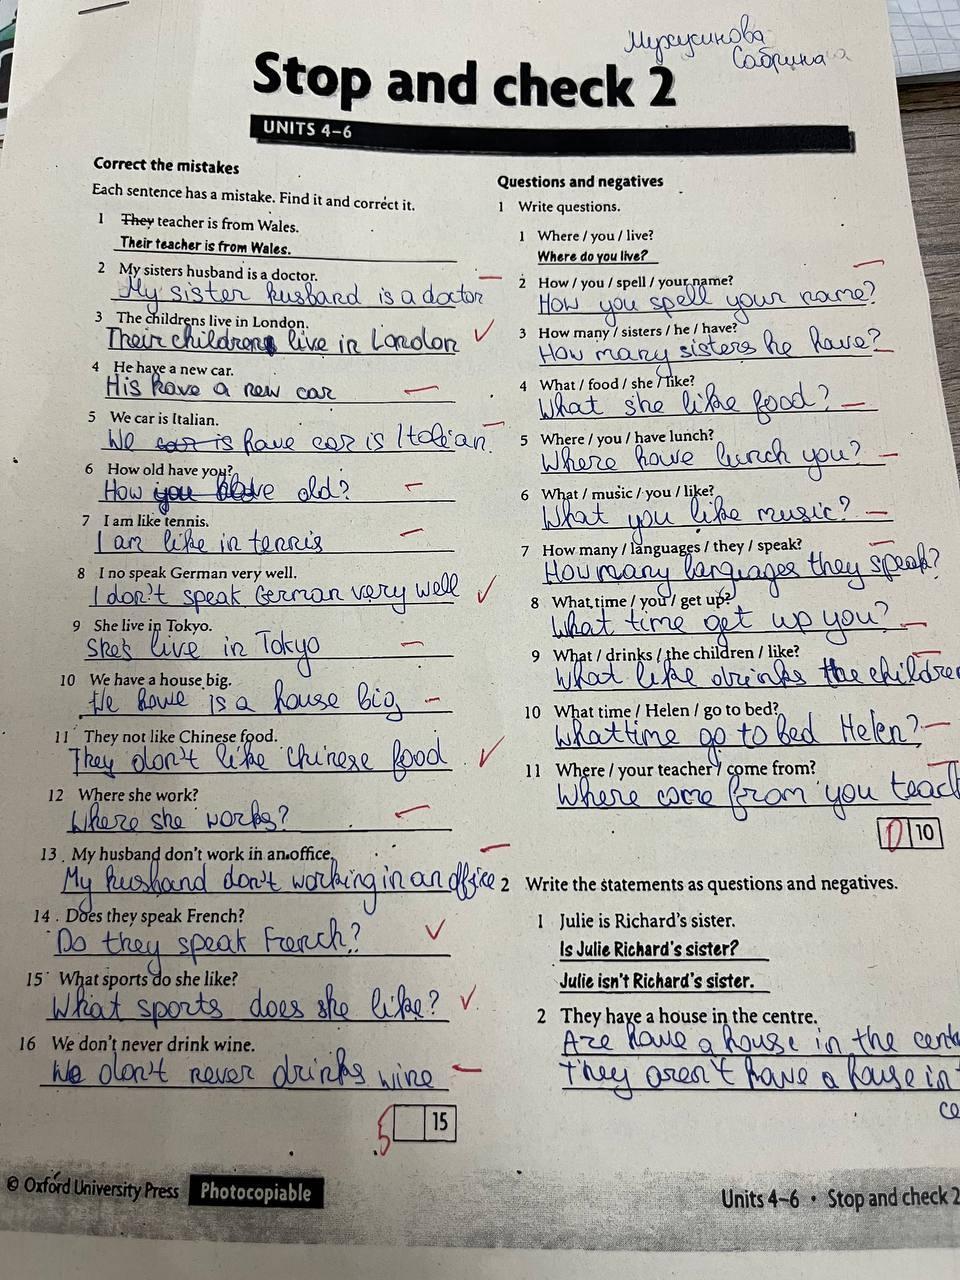 Мухусинова
Сабрина
Stop and check 2
UNITS 4–6
Correct the mistakes
Each sentence has a mistake. Find it and correct it.
1 They teacher is from Wales.
Their teacher is from Wales.
2 My sisters husband is a doctor.
My sister husband is a doctor
3 The childrens live in London.
Their children live in London
4 He have a new car.
His have a new car
5 We car is Italian.
We car is have car is Italian.
6 How old have you?
How you have old?
7 I am like tennis.
I am like in tennis
8 I no speak German very well.
I don't speak German very well
9 She live in Tokyo.
She's live in Tokyo
10 We have a house big.
We have is a house big
11 They not like Chinese food.
They don't like Chinese food
12 Where she work?
Where she works?
13 . My husband don't work in an office.
My husband don't working in an office
14 . Does they speak French?
Do they speak French?
15 What sports do she like?
What sports does she like?
16 We don't never drink wine.
We don't never drinks wine
5 15
Questions and negatives
1 Write questions.
1 Where / you / live?
Where do you live?
2 How / you / spell / your name?
How you spell your name?
3 How many / sisters / he / have?
How many sisters he have?
4 What / food / she / like?
What she like food?
5 Where / you / have lunch?
Where have lunch you?
6 What / music / you / like?
What you like music?
7 How many / languages / they / speak?
How many languages they speak?
8 What time / you / get up?
What time get up you?
9 What / drinks / the children / like?
What like drinks the children
10 What time / Helen / go to bed?
What time go to bed Helen?
11 Where / your teacher / come from?
Where come from you teach
0 10
2 Write the statements as questions and negatives.
1 Julie is Richard's sister.
Is Julie Richard's sister?
Julie isn't Richard's sister.
2 They have a house in the centre.
Are have a house in the cent
They aren't have a house in
ce
© Oxford University Press Photocopiable
Units 4–6 • Stop and check 2